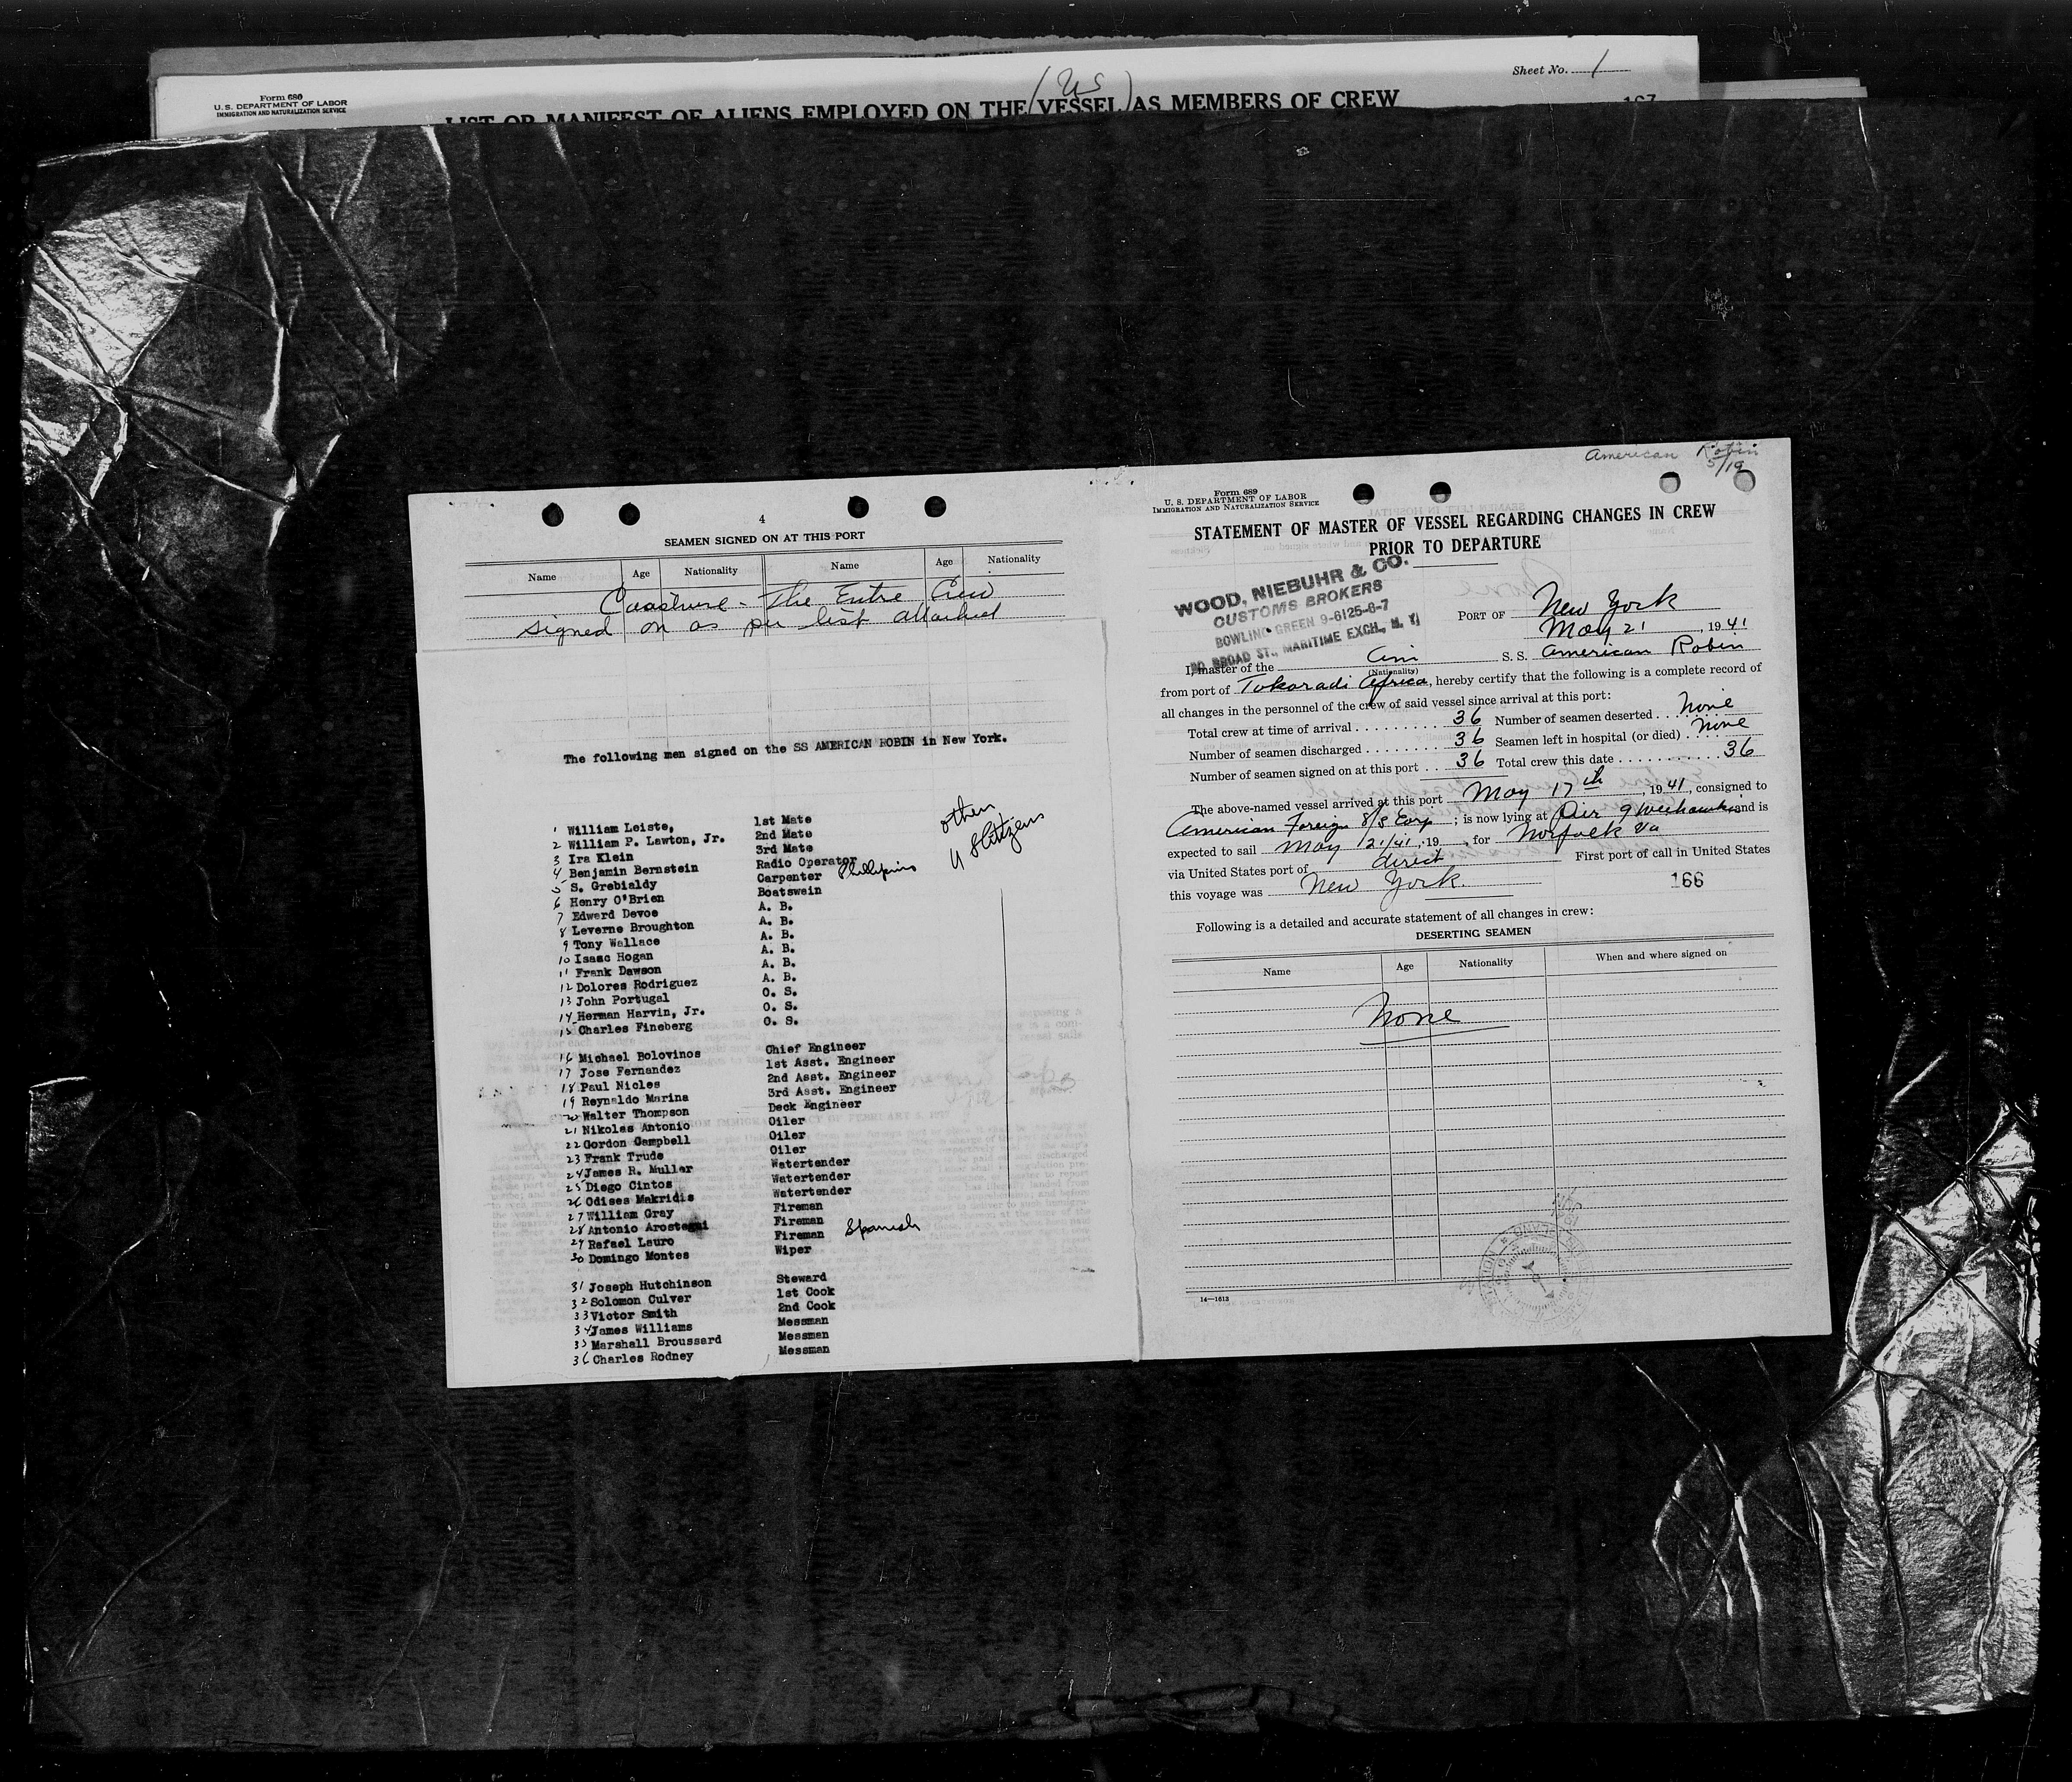 Form 680
U.S. DEPARTMENT OF LABOR
IMMIGRATION AND NATURALIZATION SERVICE
Sheet No. 1
(US)
LIST OR MANIFEST OF ALIENS EMPLOYED ON THE VESSEL AS MEMBERS OF CREW
167
4
SEAMEN SIGNED ON AT THIS PORT
Name Age Nationality Name Age Nationality
Coastwise - The Entire Crew
signed on as per list attached
The following men signed on the SS AMERICAN ROBIN in New York.
other
U S Citizens
1 William Leiste, 1st Mate
2 William P. Lawton, Jr. 2nd Mate
3 Ira Klein 3rd Mate
4 Benjamin Bernstein Radio Operator
5 S. Grebialdy Carpenter Phillipins
6 Henry O'Brien Boatswain
7 Edward Devoe A. B.
8 Leverne Broughton A. B.
9 Tony Wallace A. B.
10 Isaac Hogan A. B.
11 Frank Dawson A. B.
12 Dolores Rodriguez A. B.
13 John Portugal O. S.
14 Herman Harvin, Jr. O. S.
15 Charles Fineberg O. S.
16 Michael Bolovinos Chief Engineer
17 Jose Fernandez 1st Asst. Engineer
18 Paul Nicles 2nd Asst. Engineer
19 Reynaldo Marina 3rd Asst. Engineer
20 Walter Thompson Deck Engineer
21 Nikolas Antonio Oiler
22 Gordon Campbell Oiler
23 Frank Trude Oiler
24 James R. Muller Watertender
25 Diego Cintos Watertender
26 Odises Makridis Watertender
27 William Gray Fireman
28 Antonio Arostegui Fireman
29 Rafael Lauro Fireman Spanish
30 Domingo Montes Wiper
31 Joseph Hutchinson Steward
32 Solomon Culver 1st Cook
33 Victor Smith 2nd Cook
34 James Williams Messman
35 Marshall Broussard Messman
36 Charles Rodney Messman
American Robin
5/19
Form 689
U. S. DEPARTMENT OF LABOR
IMMIGRATION AND NATURALIZATION SERVICE
STATEMENT OF MASTER OF VESSEL REGARDING CHANGES IN CREW
PRIOR TO DEPARTURE
WOOD, NIEBUHR & CO.
CUSTOMS BROKERS
BOWLING GREEN 9-6125-6-7
BROAD ST., MARITIME EXCH., N. Y.
PORT OF New York
May 21, 1941
I, master of the Am S. S. American Robin
(Nationality)
from port of Tokoradi Africa, hereby certify that the following is a complete record of
all changes in the personnel of the crew of said vessel since arrival at this port:
Total crew at time of arrival 36 Number of seamen deserted None
Number of seamen discharged 36 Seamen left in hospital (or died) None
Number of seamen signed on at this port 36 Total crew this date 36
The above-named vessel arrived at this port May 17th, 1941, consigned to
American Foreign S/S Corp; is now lying at Pier 9 Weehawken and is
expected to sail May 21/41, 19, for Norfolk Va
via United States port of direct First port of call in United States
this voyage was New York.
166
Following is a detailed and accurate statement of all changes in crew:
DESERTING SEAMEN
Name Age Nationality When and where signed on
None
14—1613